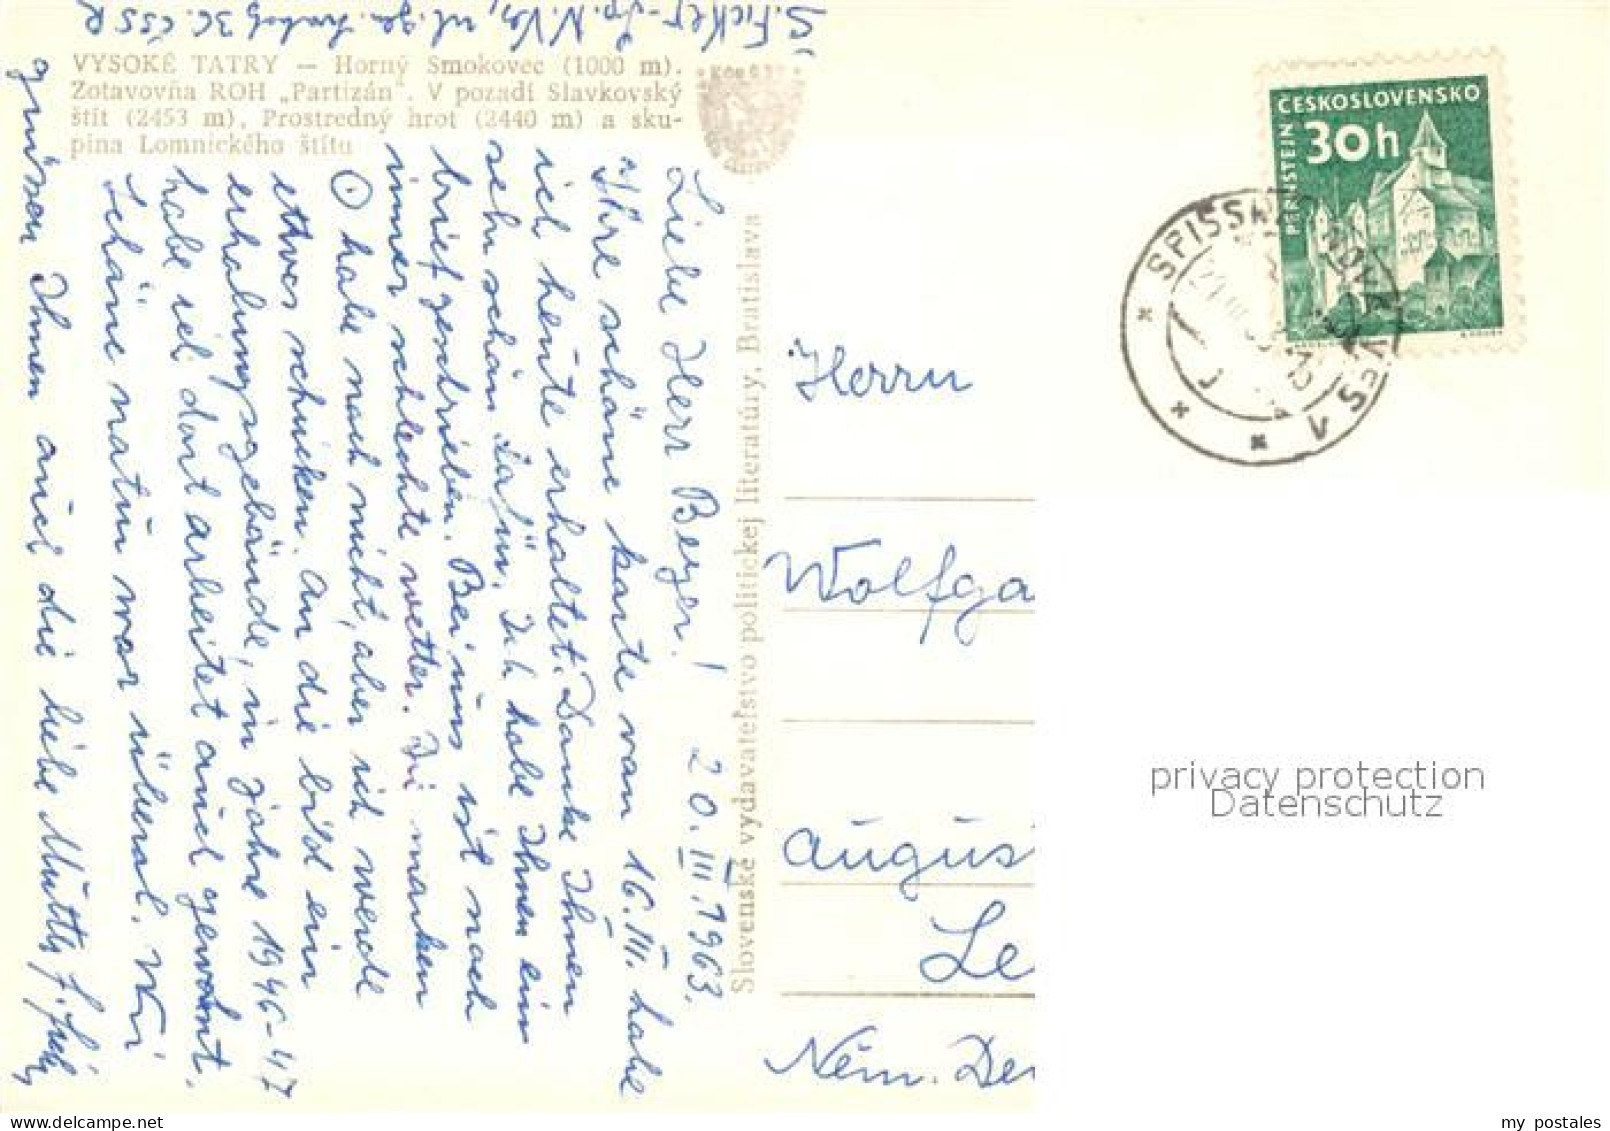 Š. Ficker - Sp. N. Ves, ul. gen. Svobodu 3C. ČSSR
VYSOKÉ TATRY — Horný Smokovec (1000 m).
Zotavovňa ROH „Partizán". V pozadí Slavkovský
štít (2453 m), Prostredný hrot (2440 m) a sku-
pina Lomnického štítu
Liebe Herr Beyer! 20.III.1963.
Ihre schöne karte von 16.III. habe
ich heute erhaltet. Danke Ihnen
sehr schön dafür. Ich habe Ihnen ein
brief gendrieben. Bei uns ist noch
immer schlechte wetter. Die marken
habe noch nicht, aber ich werde
etwas schicken. An die bild ein
erhalungsgebäude, in jahre 1946-47
habe ich dort arbeitet auch gewohnt.
Schöne natur war überal. Wir
grüsen Ihnen auch die liebe Mutty
Slovenské vydavateľstvo politickej literatúry, Bratislava
ČESKOSLOVENSKO
30h
PERNŠTEJN
SPIŠSKÁ NOVÁ VES 1
Herrn
Wolfga
Augus
Le
Něm. De
privacy protection
Datenschutz
my postales